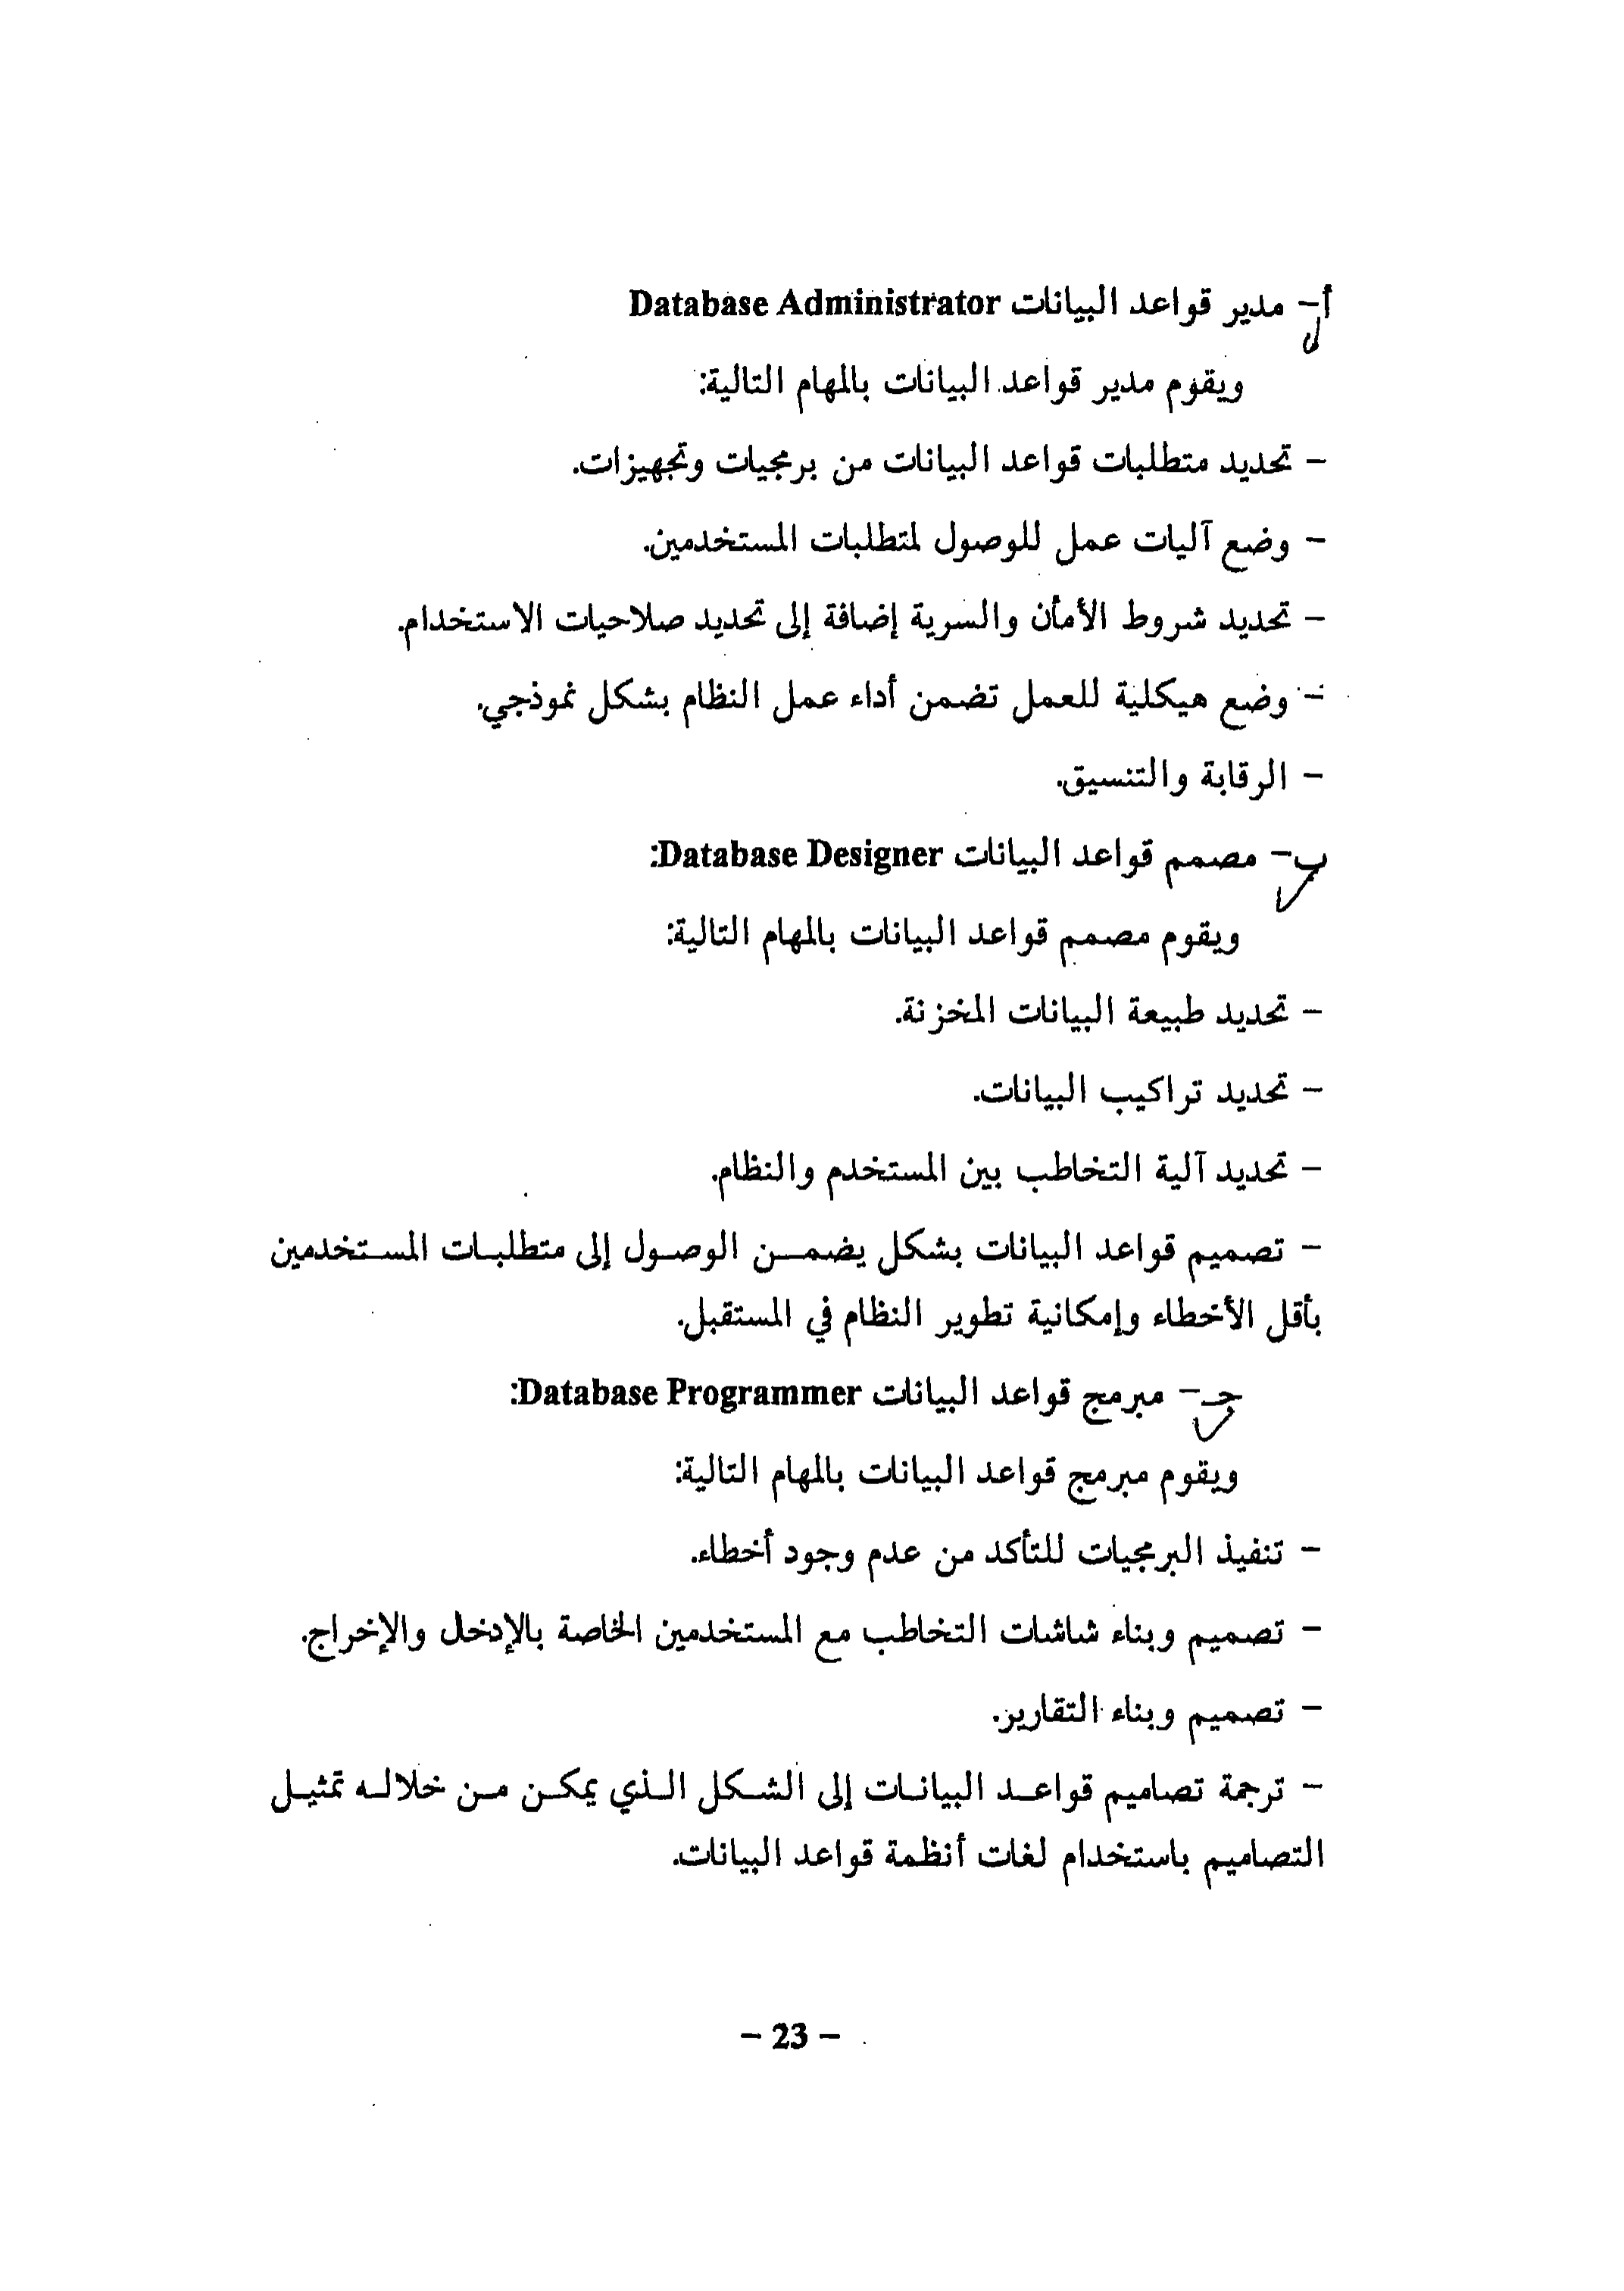 أ- مدير قواعد البيانات Database Administrator
ويقوم مدير قواعد البيانات بالمهام التالية:
- تحديد متطلبات قواعد البيانات من برمجيات وتجهيزات.
- وضع آليات عمل للوصول لمتطلبات المستخدمين.
- تحديد شروط الأمان والسرية إضافة إلى تحديد صلاحيات الاستخدام.
- وضع هيكلية للعمل تضمن أداء عمل النظام بشكل نموذجي.
- الرقابة والتنسيق.
ب- مصمم قواعد البيانات Database Designer:
ويقوم مصمم قواعد البيانات بالمهام التالية:
- تحديد طبيعة البيانات المخزنة.
- تحديد تراكيب البيانات.
- تحديد آلية التخاطب بين المستخدم والنظام.
- تصميم قواعد البيانات بشكل يضمن الوصول إلى متطلبات المستخدمين
بأقل الأخطاء وإمكانية تطوير النظام في المستقبل.
جـ- مبرمج قواعد البيانات Database Programmer:
ويقوم مبرمج قواعد البيانات بالمهام التالية:
- تنفيذ البرمجيات للتأكد من عدم وجود أخطاء.
- تصميم وبناء شاشات التخاطب مع المستخدمين الخاصة بالإدخال والإخراج.
- تصميم وبناء التقارير.
- ترجمة تصاميم قواعد البيانات إلى الشكل الذي يمكن من خلاله تمثيل
التصاميم باستخدام لغات أنظمة قواعد البيانات.
- 23 -